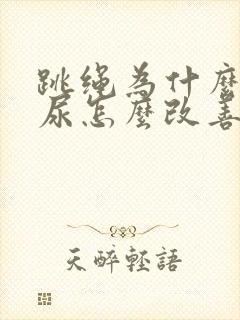 跳绳为什麼
尿怎麼改善
天醉轻語